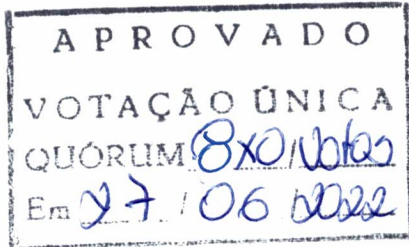 APROVADO
VOTAÇÃO ÚNICA
QUÓRUM 8x0 / Votos
Em 27 / 06 / 2022